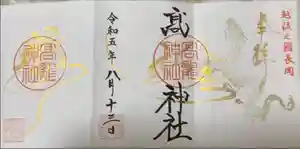 越後之國長岡
奉拝
髙龍神社
髙 神社
髙龍神社
令和五年八月十三日